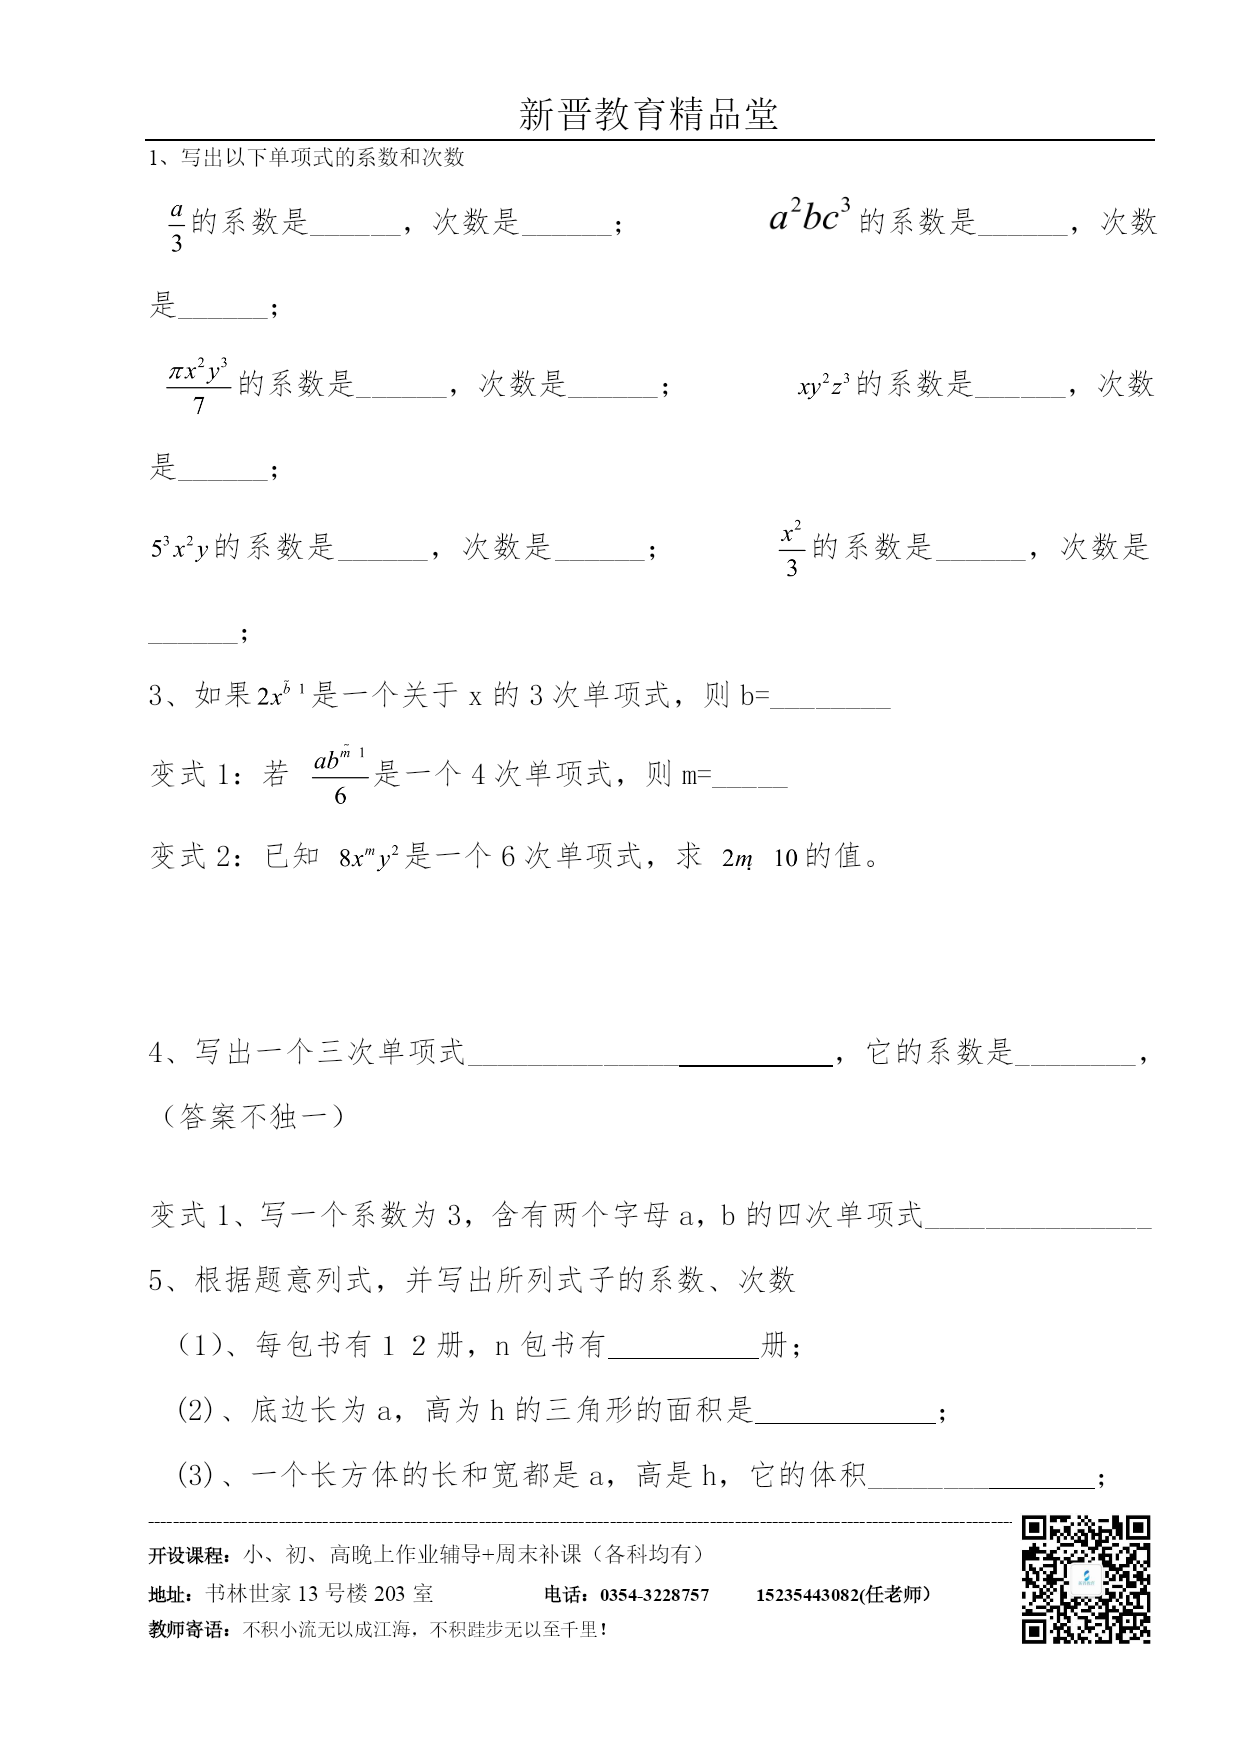 新晋教育精品堂
1、写出以下单项式的系数和次数
a/3的系数是______，次数是______； a²bc³的系数是______，次数
是______；
πx²y³/7的系数是______，次数是______； xy²z³的系数是______，次数
是______；
5³x²y的系数是______，次数是______； x²/3的系数是______，次数是
______；
3、如果2x^b 1是一个关于x的3次单项式，则b=________
变式1：若 ab^m 1/6是一个4次单项式，则m=_____
变式2：已知 8x^m y²是一个6次单项式，求 2m 10的值。
4、写出一个三次单项式________________________，它的系数是________，
（答案不独一）
变式1、写一个系数为3，含有两个字母a，b的四次单项式_______________
5、根据题意列式，并写出所列式子的系数、次数
（1）、每包书有12册，n包书有__________册；
(2)、底边长为a，高为h的三角形的面积是____________；
(3)、一个长方体的长和宽都是a，高是h，它的体积_______________；
开设课程：小、初、高晚上作业辅导+周末补课（各科均有）
地址：书林世家13号楼203室 电话：0354-3228757 15235443082(任老师）
教师寄语：不积小流无以成江海，不积跬步无以至千里！